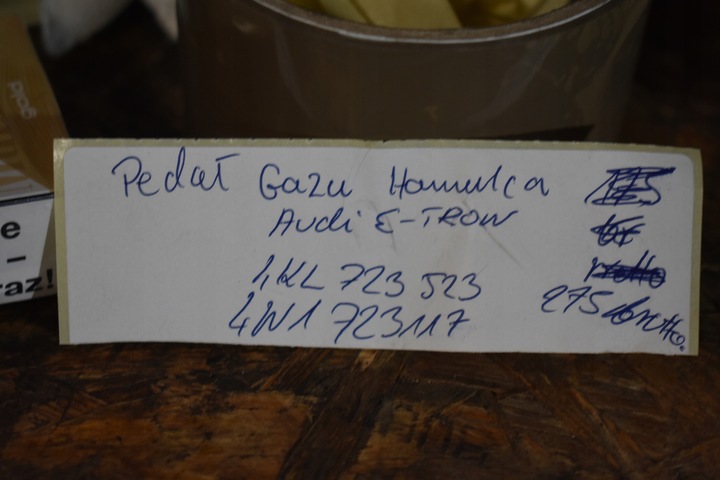 Pedał Gazu Hamulca
Audi E-TRON
4KL 723 523
4N1 723117
275 brutto.
e
–
raz!